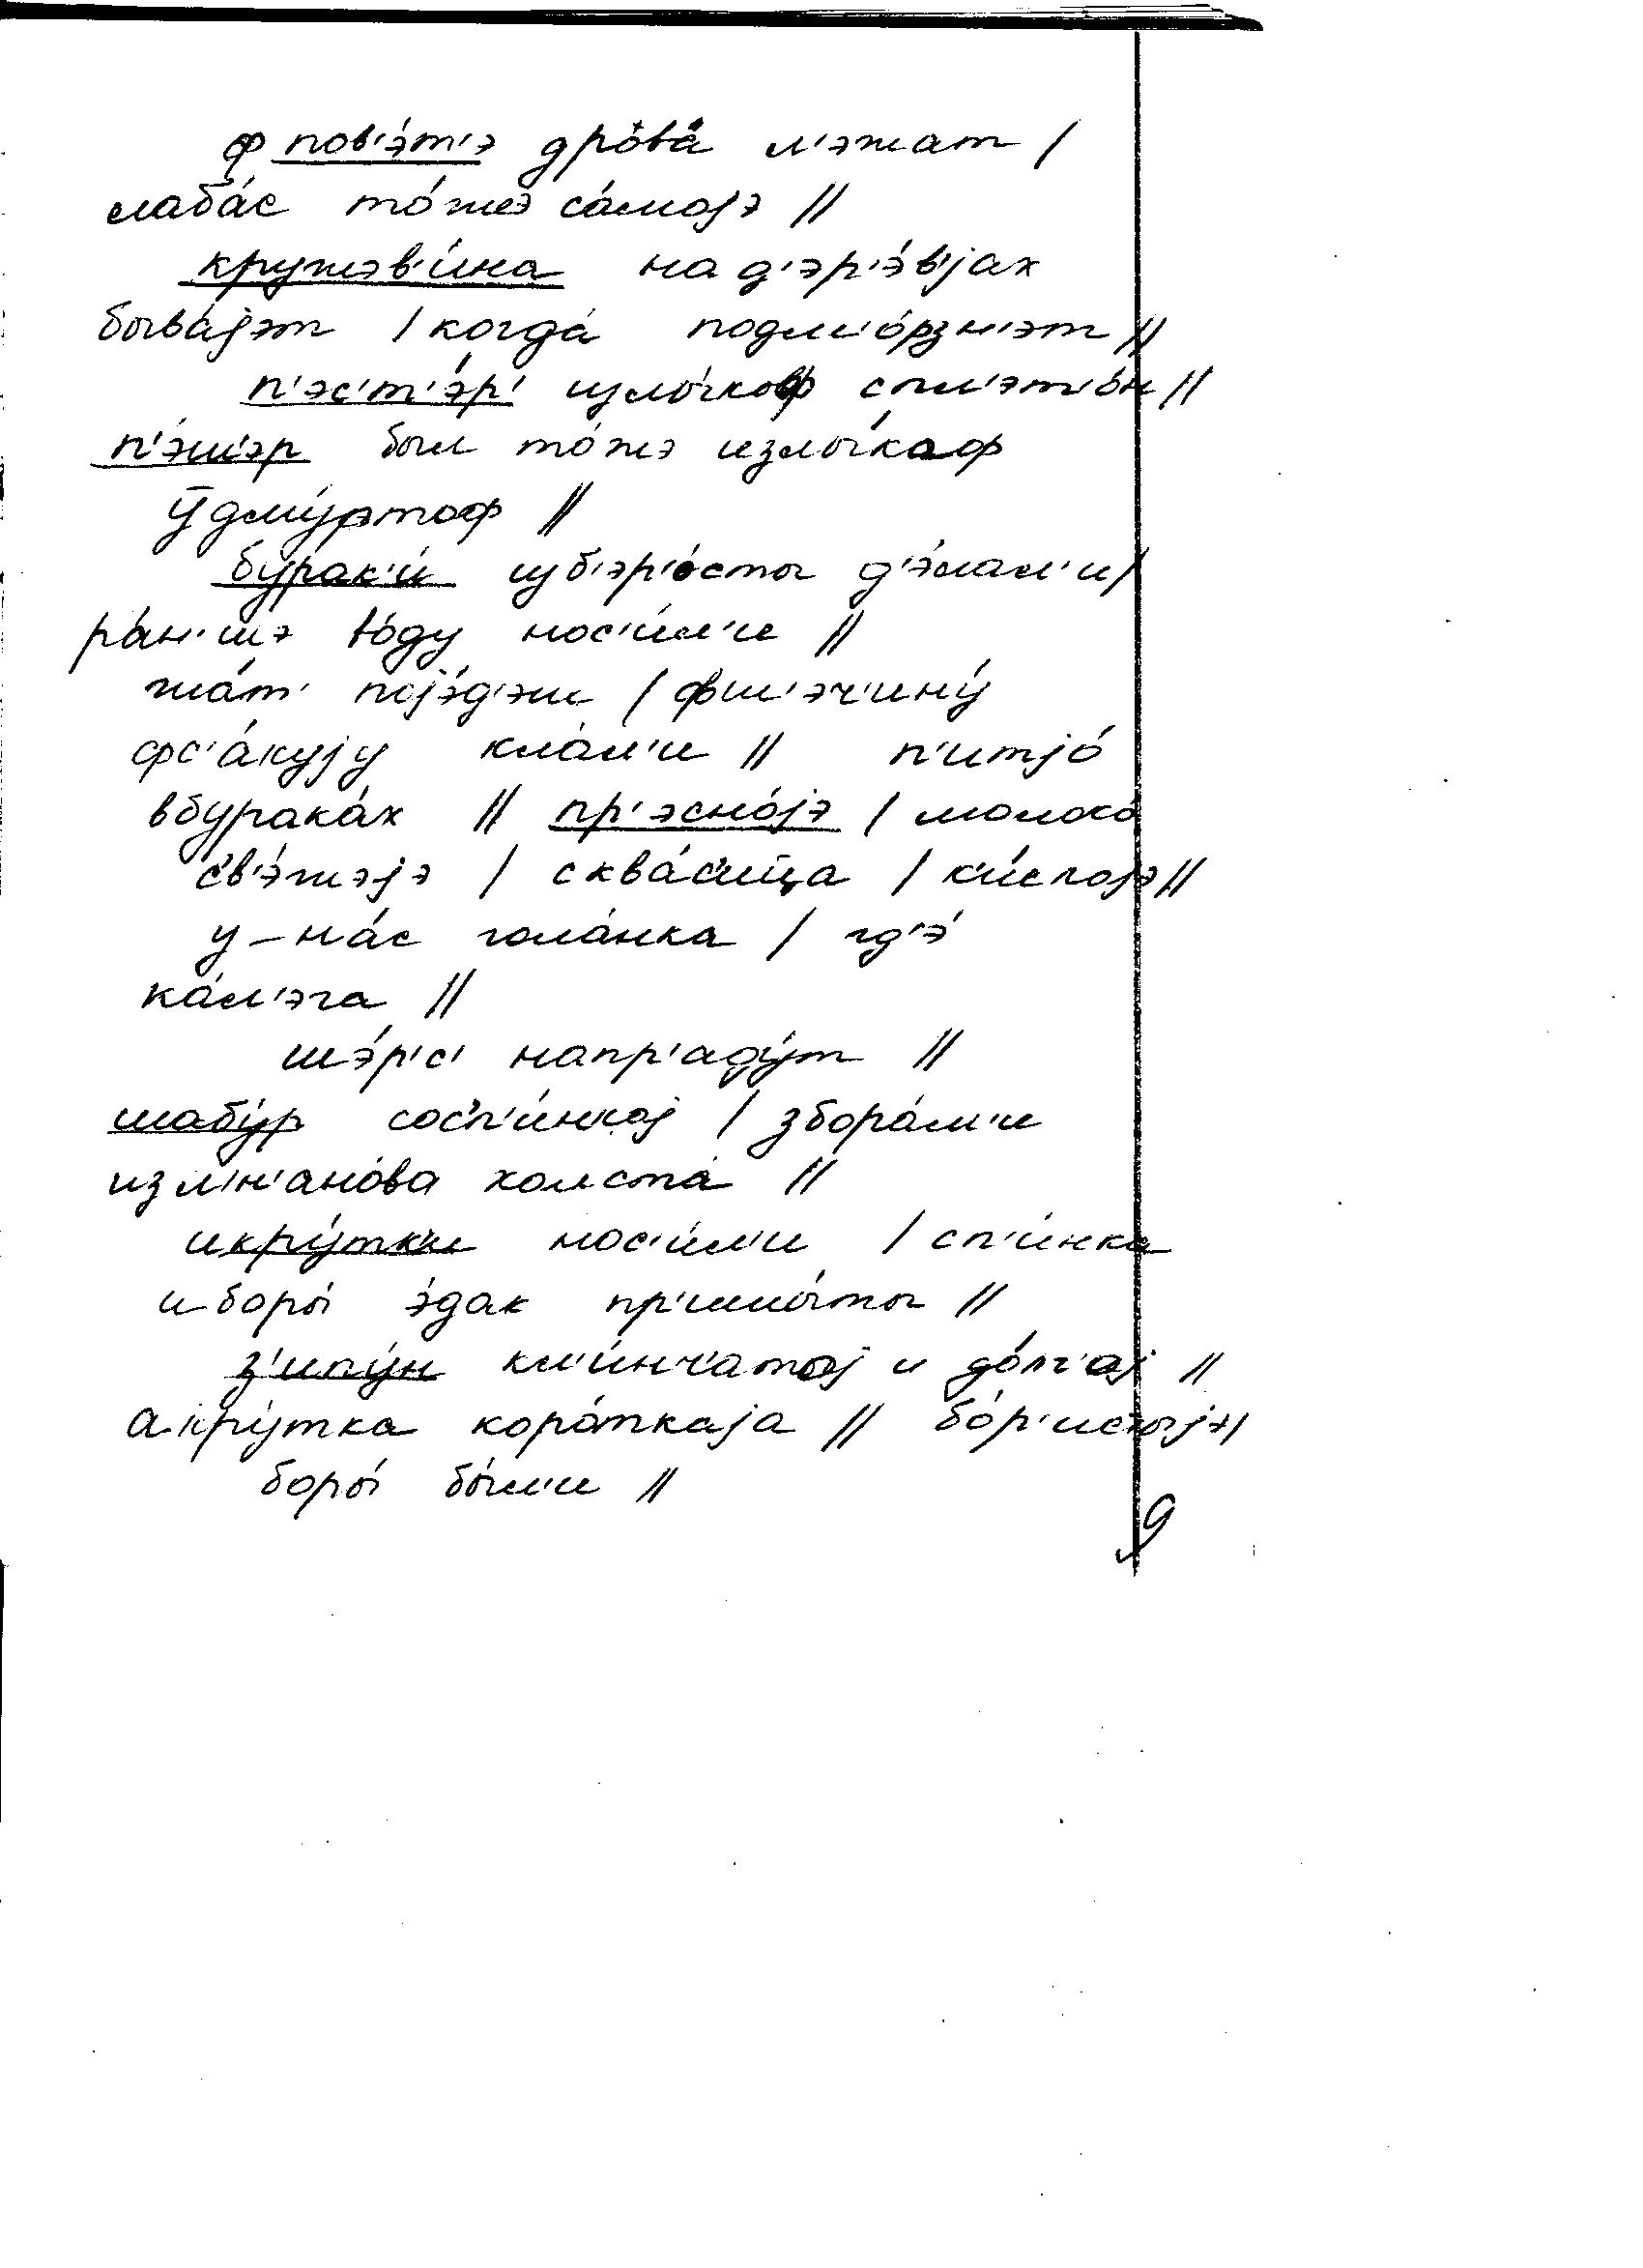 ф пов'э́т'э дрова́ л'эжат /
лаба́с то́жэ са́мојэ //
кружэв'и́на на д'эр'э́в'јах
быва́јэт / когда́ подм'о́рзн'эт //
п'эс'т'э́р' излы́коф спл'эт'о́н //
п'э́ш'эр был то́жэ излы́каф
ӯдму́ртоф //
бурак'и́ изб'эр'о́сты д'э́лал'и /
ра́н'шэ во́ду нос'и́л'и //
жа́т' појэ́д'эш / фш'эч'ину́
фс'а́кују кла́л'и // п'итјо́
вбурака́х // пр'эсно́јэ / молоко́
с'в'э́жэјэ / сква́с'ица / к'и́слојэ //
у-на́с гола́нка / гд'э́
ка́л'эга //
шэ́р'с' напр'аду́т //
шабу́р сос'п'и́нкој / збора́м'и
изл'н'ано́ва холста́ //
икру́тк'и нос'и́л'и / сп'и́нка
и боры́ э́дак пр'ишы́ты //
з'ипу́н кл'и́нч'атој и до́лг'ај //
а.кру́тка коро́ткаја // бо́р'истыјэ /
боры́ бы́л'и //
9